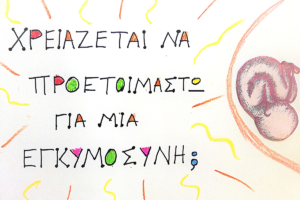 ΧΡΕΙΑΖΕΤΑΙ ΝΑ
ΠΡΟΕΤΟΙΜΑΣΤΩ
ΓΙΑ ΜΙΑ
ΕΓΚΥΜΟΣΥΝΗ;